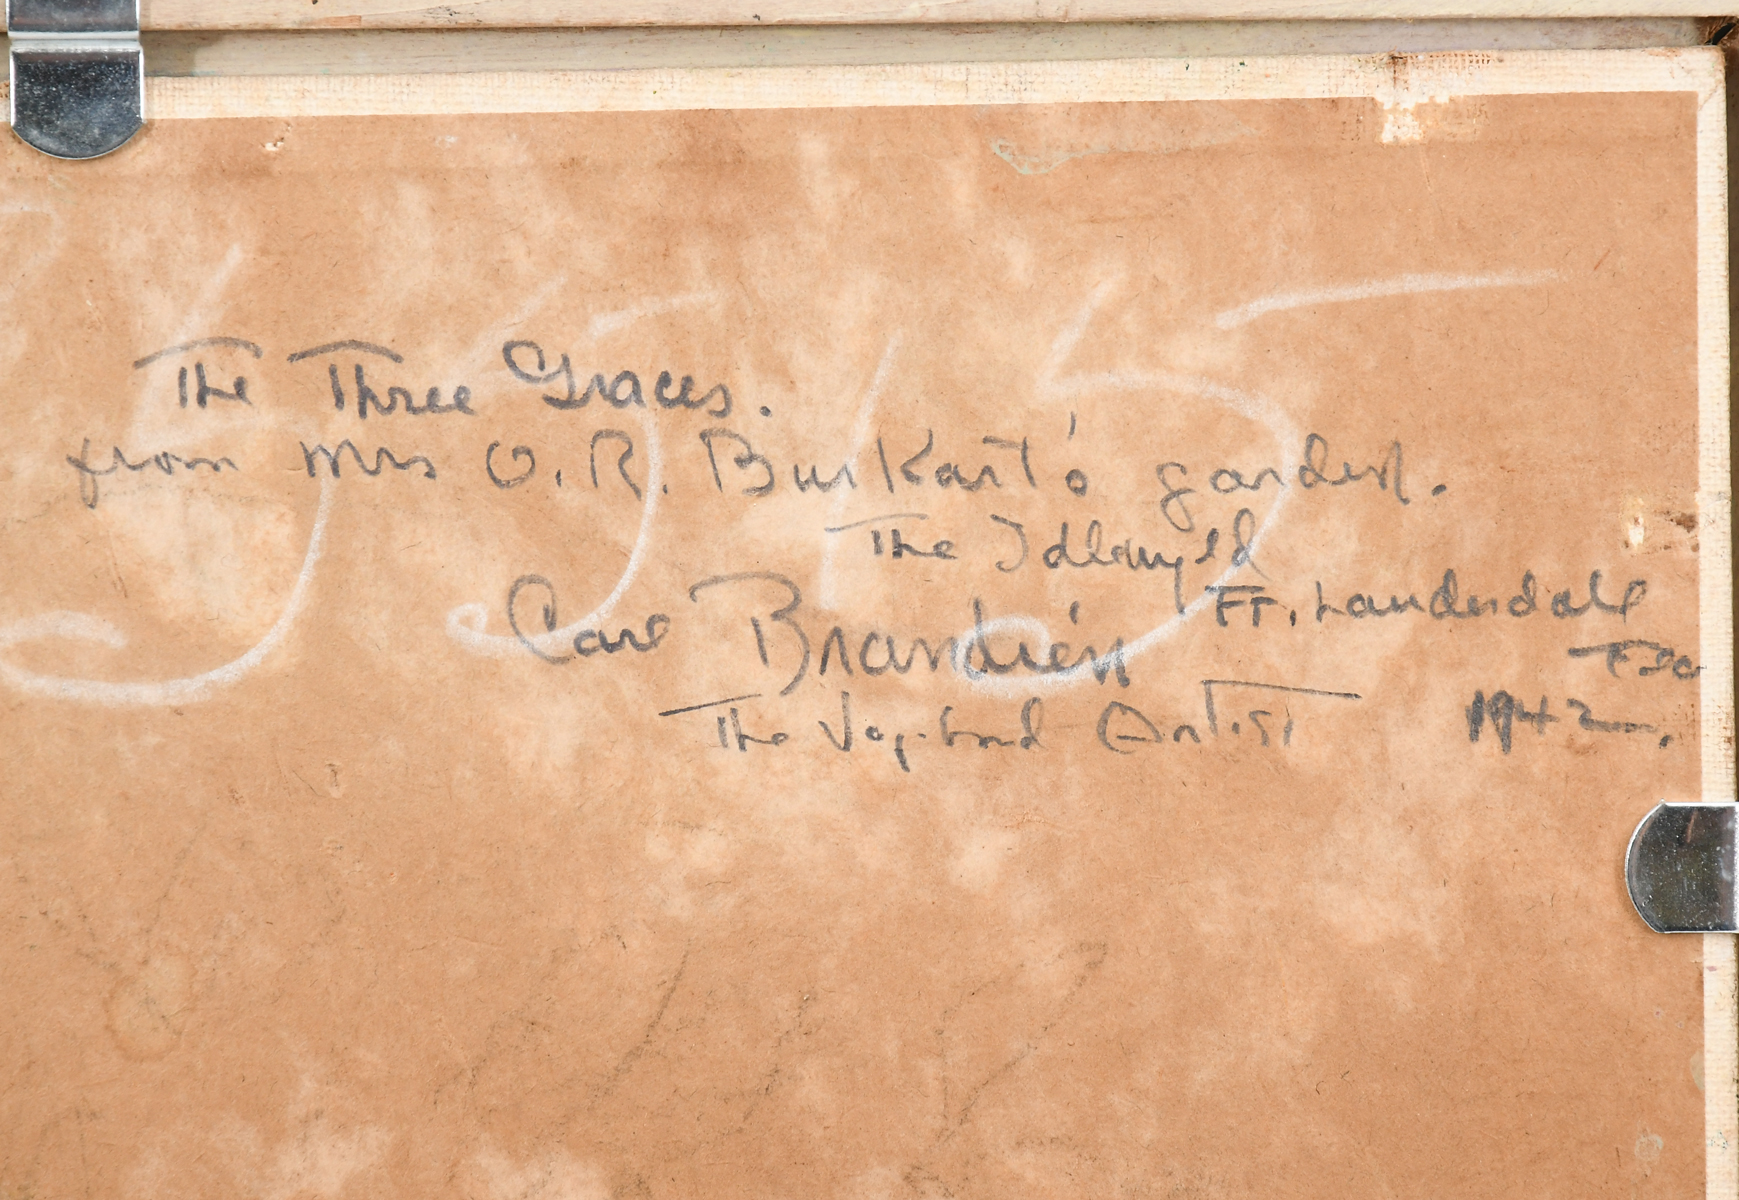 The Three Graces.
from Mrs O. R. Burkart's garden.
The Idlewyld
Ft. Lauderdale
Fla
Carl Brandién
1942.
The Vagabond Artist